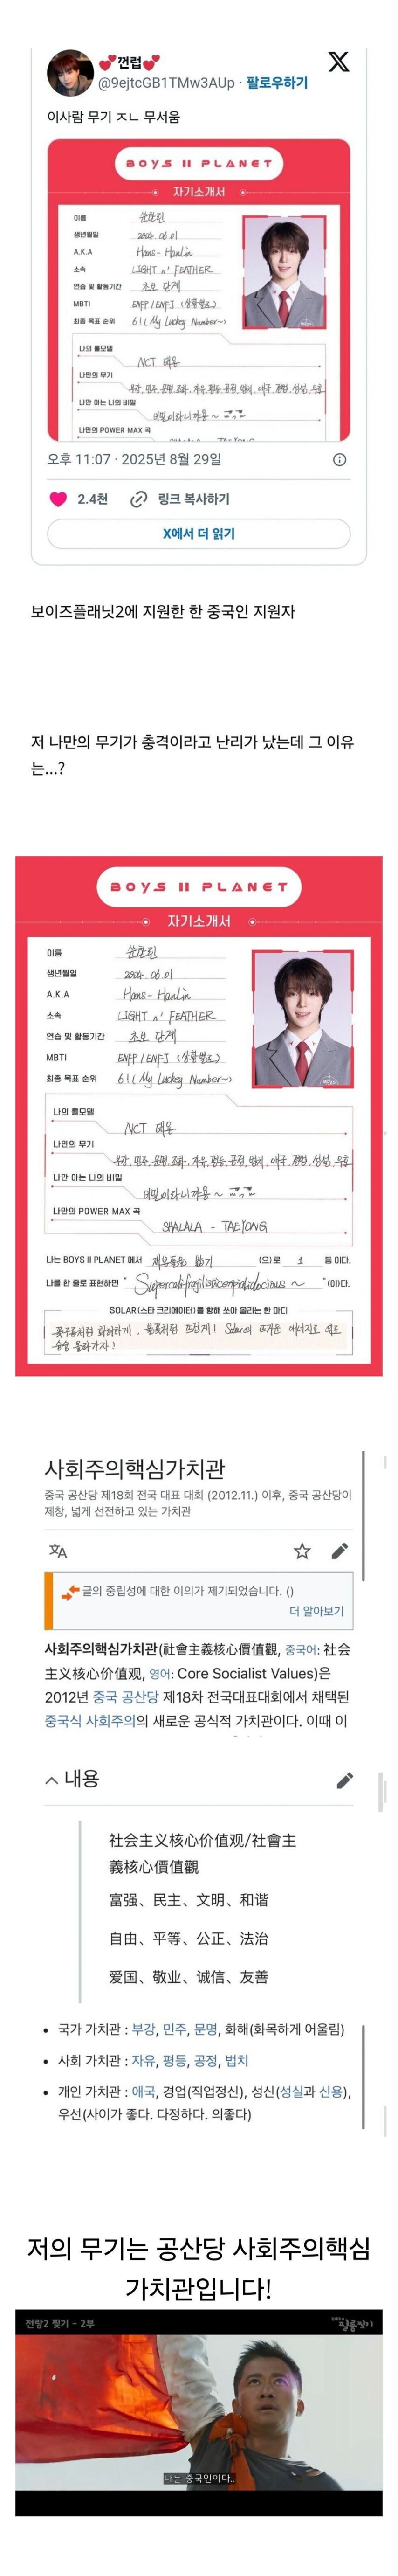 💕껀럽💕
@9ejtcGB1TMw3AUp · 팔로우하기
이사람 무기 ㅈㄴ 무서움
BOYS II PLANET
자기소개서
이름 순한린
생년월일 2004.06.01
A.K.A Hans-Hanlin
소속 LIGHT n' FEATHER
연습 및 활동기간 초보 단계
MBTI ENFP/ENFJ (상황별로)
최종 목표 순위 6! (My Lucky Number~)
나의 롤모델
NCT 태용
나만의 무기
부강, 민주, 문명, 조화, 자유, 평등, 공정, 법치, 애국, 경업, 성신, 우호
나만 아는 나의 비밀
비밀이라니까용~
나만의 POWER MAX 곡
오후 11:07 · 2025년 8월 29일
2.4천 링크 복사하기
X에서 더 읽기
보이즈플래닛2에 지원한 한 중국인 지원자
저 나만의 무기가 충격이라고 난리가 났는데 그 이유
는...?
BOYS II PLANET
자기소개서
이름 순한린
생년월일 2004.06.01
A.K.A Hans-Hanlin
소속 LIGHT n' FEATHER
연습 및 활동기간 초보 단계
MBTI ENFP/ENFJ (상황별로)
최종 목표 순위 6! (My Lucky Number~)
나의 롤모델
NCT 태용
나만의 무기
부강, 민주, 문명, 조화, 자유, 평등, 공정, 법치, 애국, 경업, 성신, 우호
나만 아는 나의 비밀
비밀이라니까용~
나만의 POWER MAX 곡
SHALALA - TAEYONG
나는 BOYS II PLANET 에서 (으)로 1 등 이다.
나를 한 줄로 표현하면 " Supercalifragilisticexpialidocious ~ " (이)다.
SOLAR(스타 크리에이터)를 향해 쏘아 올리는 한 마디
꽃처럼 화려하게, 불꽃처럼 뜨겁게! Solar의 뜨거운 에너지로 위로
슝슝 올라가자!
사회주의핵심가치관
중국 공산당 제18회 전국 대표 대회 (2012.11.) 이후, 중국 공산당이
제창, 넓게 선전하고 있는 가치관
글의 중립성에 대한 이의가 제기되었습니다. ()
더 알아보기
사회주의핵심가치관(社會主義核心價值觀, 중국어: 社会
主义核心价值观, 영어: Core Socialist Values)은
2012년 중국 공산당 제18차 전국대표대회에서 채택된
중국식 사회주의의 새로운 공식적 가치관이다. 이때 이
내용
社会主义核心价值观/社會主
義核心價值觀
富强、民主、文明、和谐
自由、平等、公正、法治
爱国、敬业、诚信、友善
• 국가 가치관 : 부강, 민주, 문명, 화해(화목하게 어울림)
• 사회 가치관 : 자유, 평등, 공정, 법치
• 개인 가치관 : 애국, 경업(직업정신), 성신(성실과 신용),
우선(사이가 좋다. 다정하다. 의좋다)
저의 무기는 공산당 사회주의핵심
가치관입니다!
전랑2 찢기 - 2부
필름찢기
나는 중국인이다..